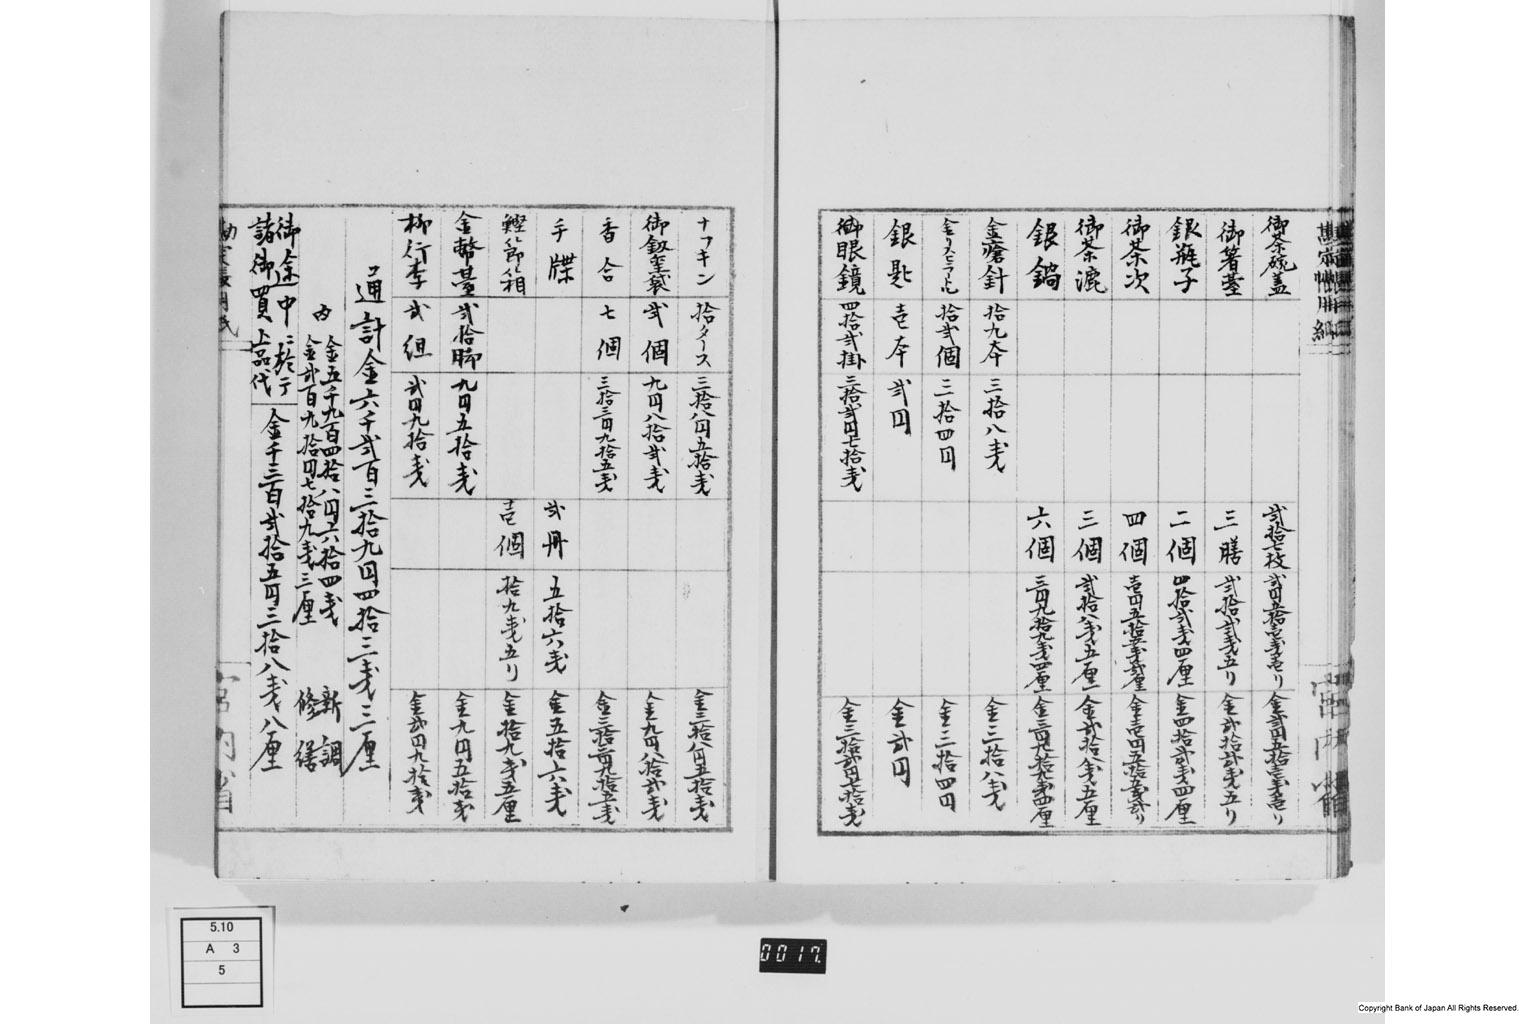 御茶碗蓋 弐拾七枚 弐円五拾壱戋壱リ 金弐円五拾壱戋壱リ
御箸䑓 三膳 弐拾弐戋五リ 金弐拾弐戋五リ
銀瓶子 二個 四拾弐戋四厘 金四拾弐戋四厘
御茶次 四個 壱円五拾五戋弐厘 金壱円五拾五戋弐リ
御茶漉 三個 弐拾八戋五厘 金弐拾八戋五厘
銀鍋 六個 三円九拾九戋四厘 金三円九拾九戋四厘
金瘡針 拾九本 三拾八戋 金三拾八戋
拾弐個 三拾四円 金三拾四円
銀匙 壱本 弐円 金弐円
御眼鏡 四拾弐掛 三拾弐円七拾戋 金三拾弐円七拾戋
ナフキン 拾タース 三拾八円五拾戋 金三拾八円五拾戋
弐個 九円八拾弐戋 金九円八拾弐戋
香合 七個 三拾三円九拾五戋 金三拾三円九拾五戋
手牒 弐冊 五拾六戋 金五拾六戋
鰹節箱 壱個 拾九戋五リ 金拾九戋五厘
金幣䑓 弐拾脚 九円五拾戋 金九円五拾戋
柳行李 弐組 弐円九拾戋 金弐円九拾戋
通計金六千弐百三拾九円四拾三戋三厘
内 金五千九百四拾八円六拾四戋 新調
金弐百九拾円七拾九戋三厘 修繕
御途中ニ於テ
諸御買上品代 金千三百弐拾五円三拾八戋八厘
宮内省
5.10
A 3
5
0017.
Copyright Bank of Japan All Rights Reserved.